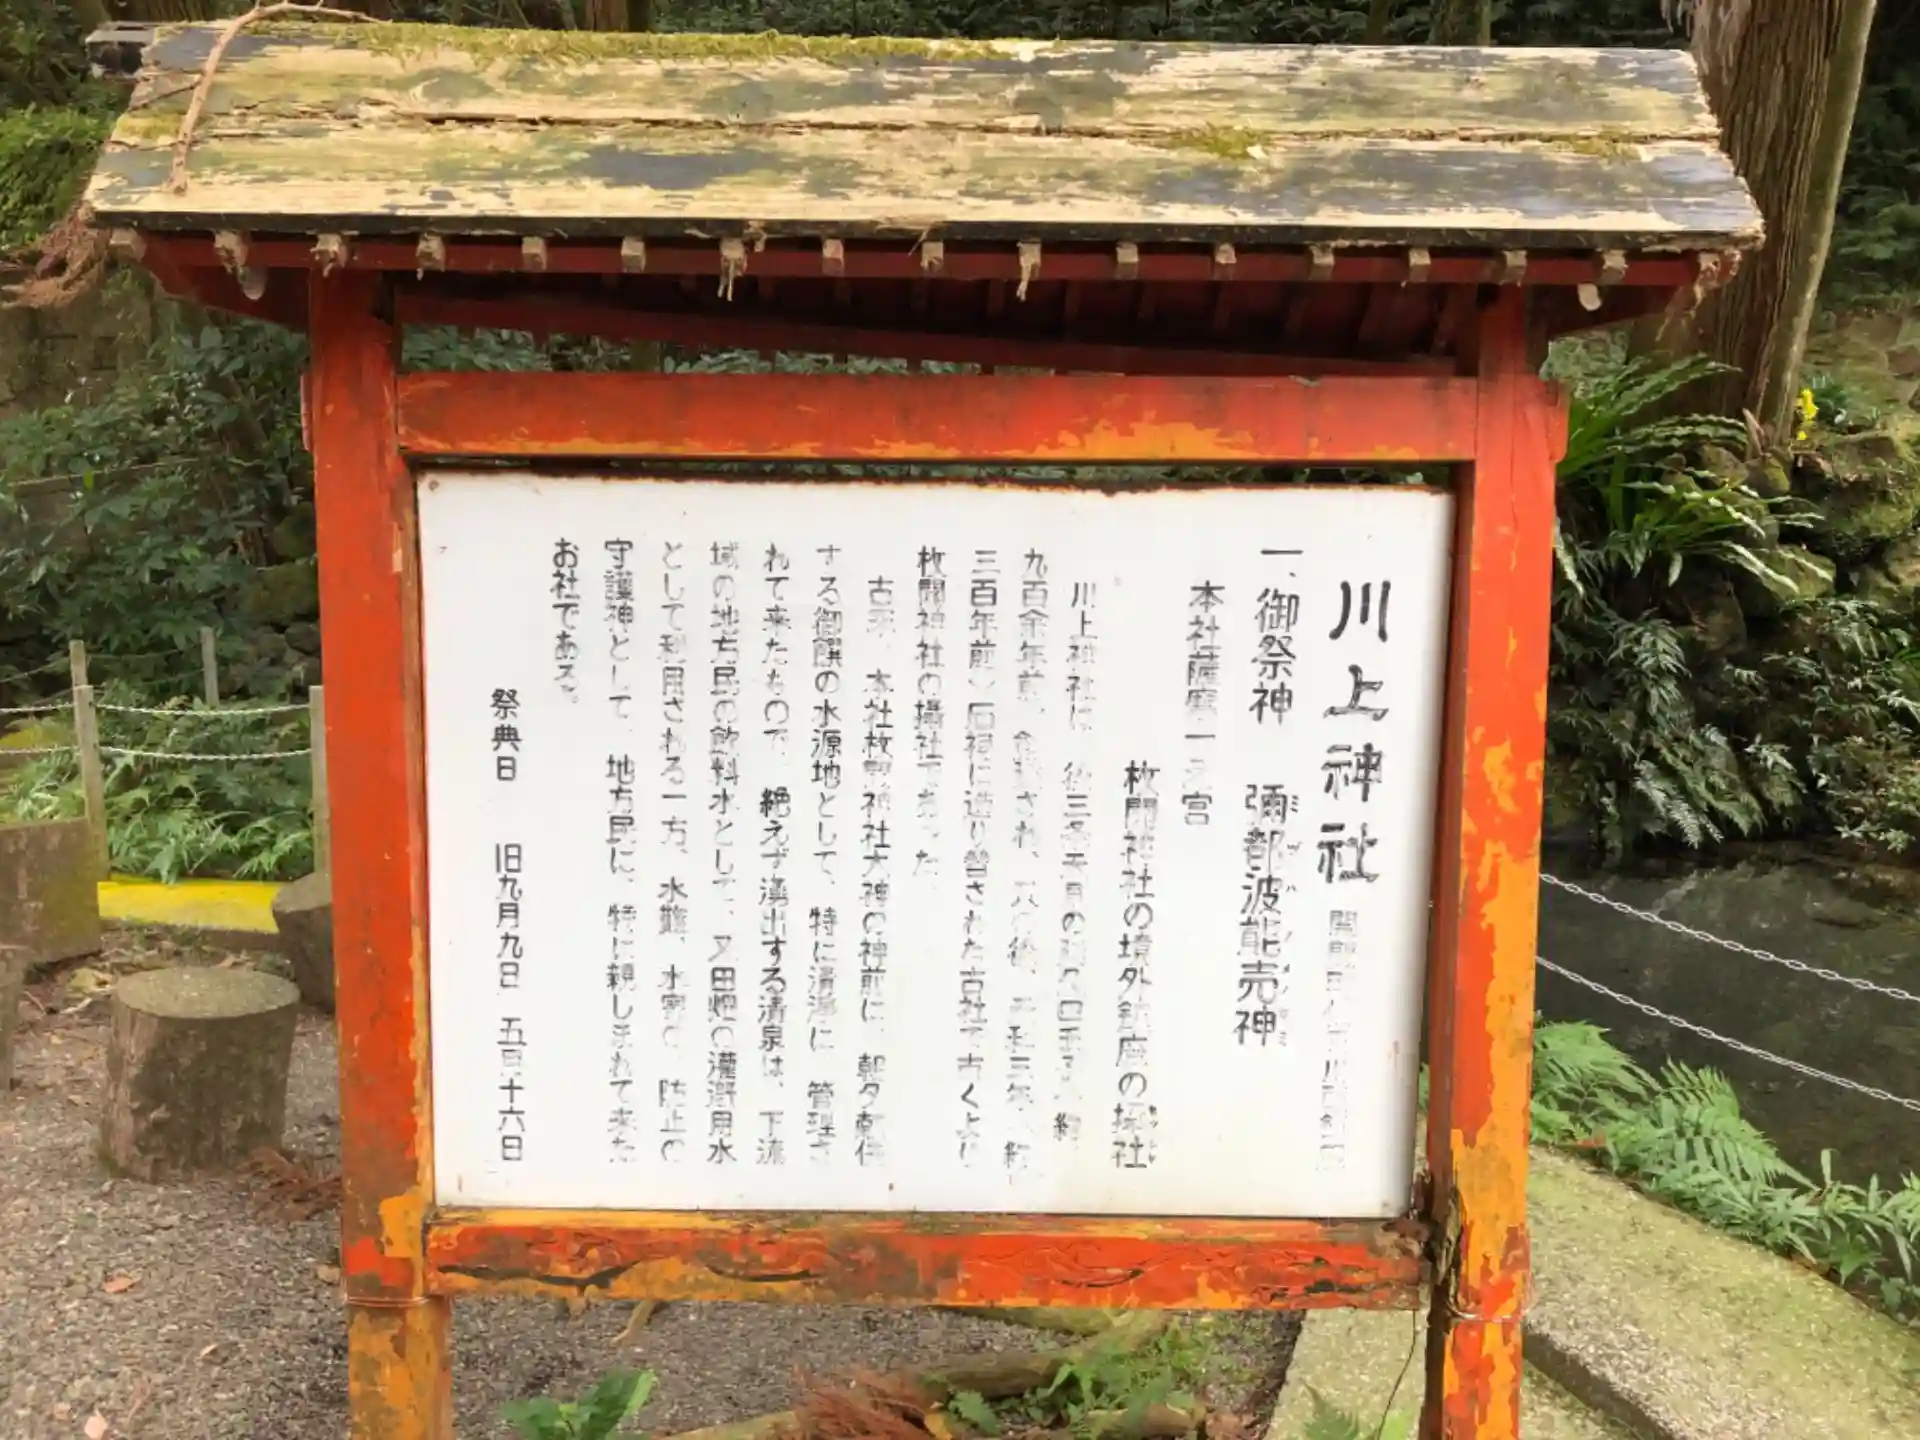 川上神社
一、御祭神 彌都波能売神
ミヅハノメノカミ
本社薩摩一之宮
枚聞神社の境外鎮座の摂社
川上神社は、後三条天皇の
九百余年前、され、その後、三年
三百年前に石祠に造り替された古社で古くより
枚聞神社の攝社であった
古来、本社枚聞神社大神の神前に、朝夕献供
する御饌の水源地として、特に清浄に、管理さ
れて来たもので、絶えず湧出する清泉は、下流
域の地方民の飲料水として、又田畑の灌漑用水
として利用される一方、水難、水害の、防止の
守護神として、地方民に、特に親しまれて来た
お社である。
祭典日 旧九月九日 五月十六日